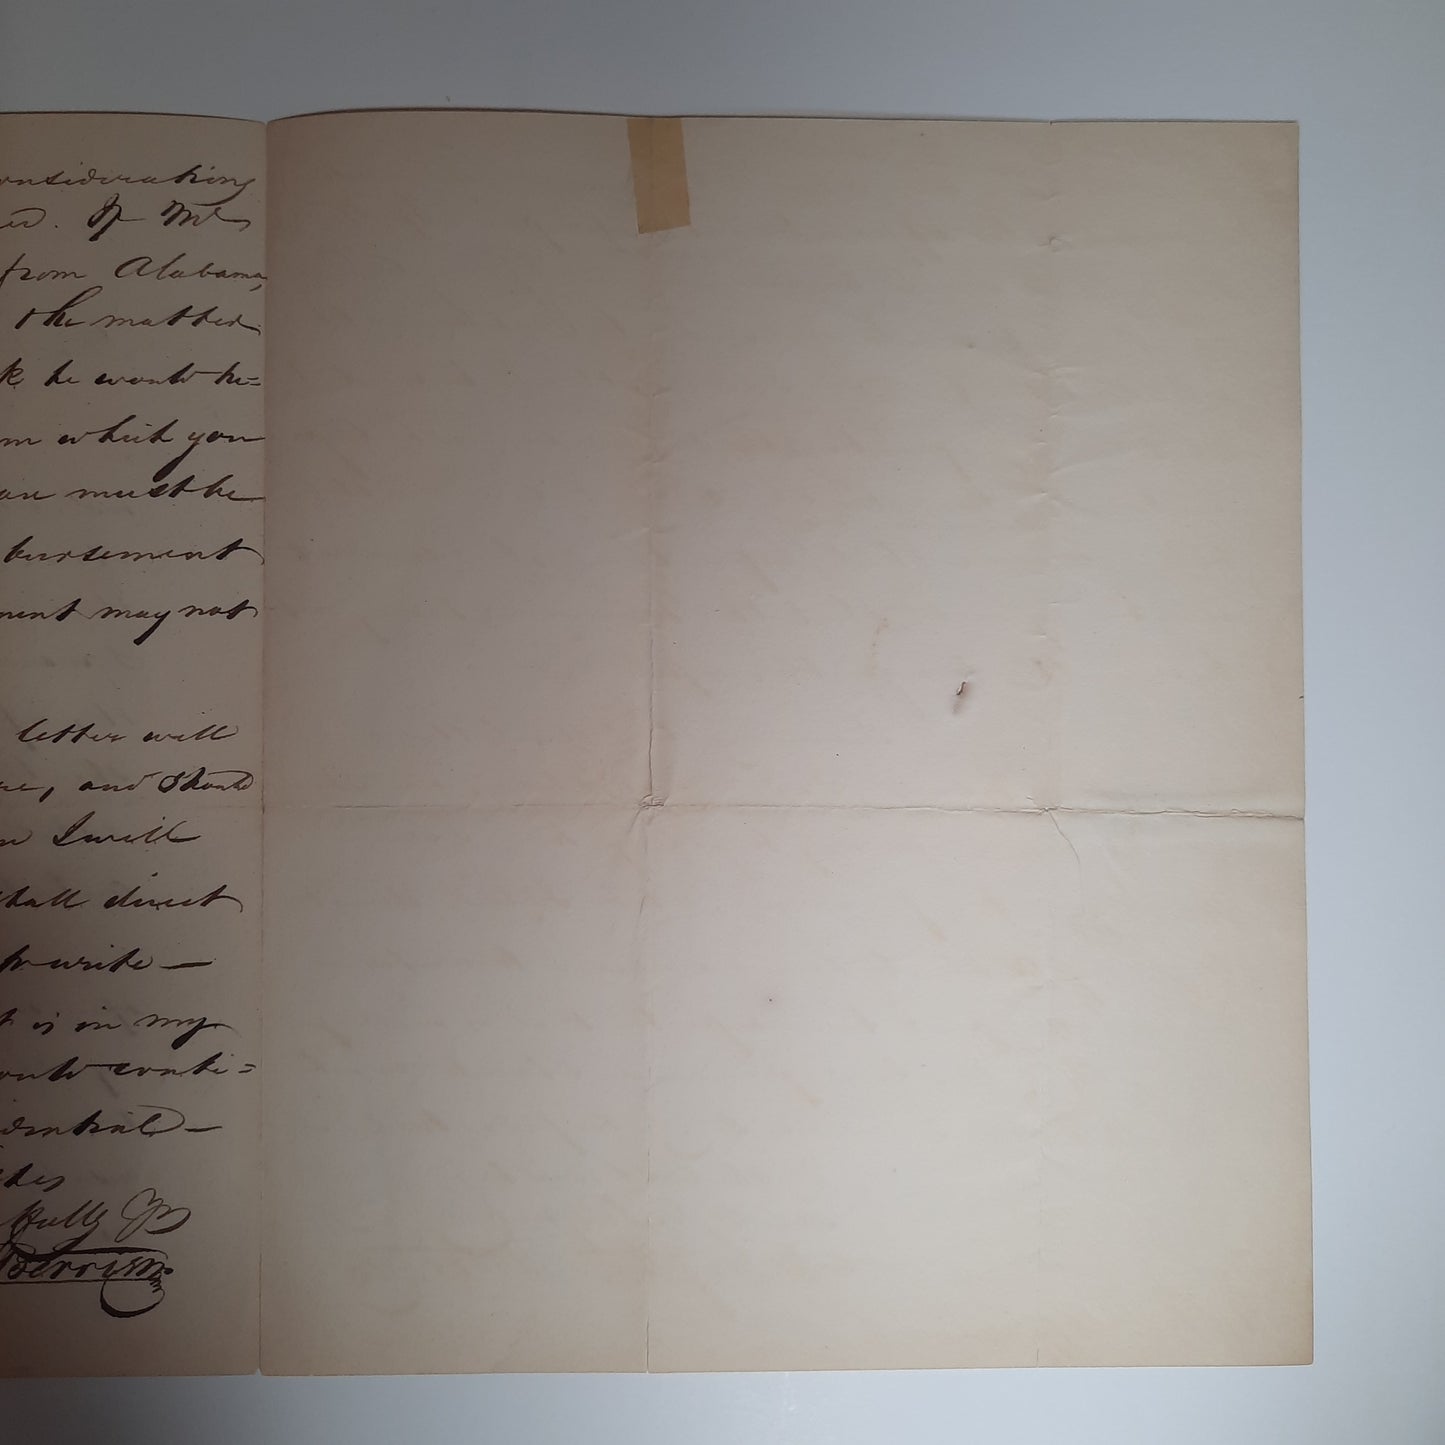 onsiderations
ed. If Mr
from Alabama,
the matter
k he would be=
m which you
ou must be
bursement
ment may not
letter will
me, and should
n I will
shall direct
to write —
t is in my
ould conti=
idential —
hes
tfully Yrs
Berrien